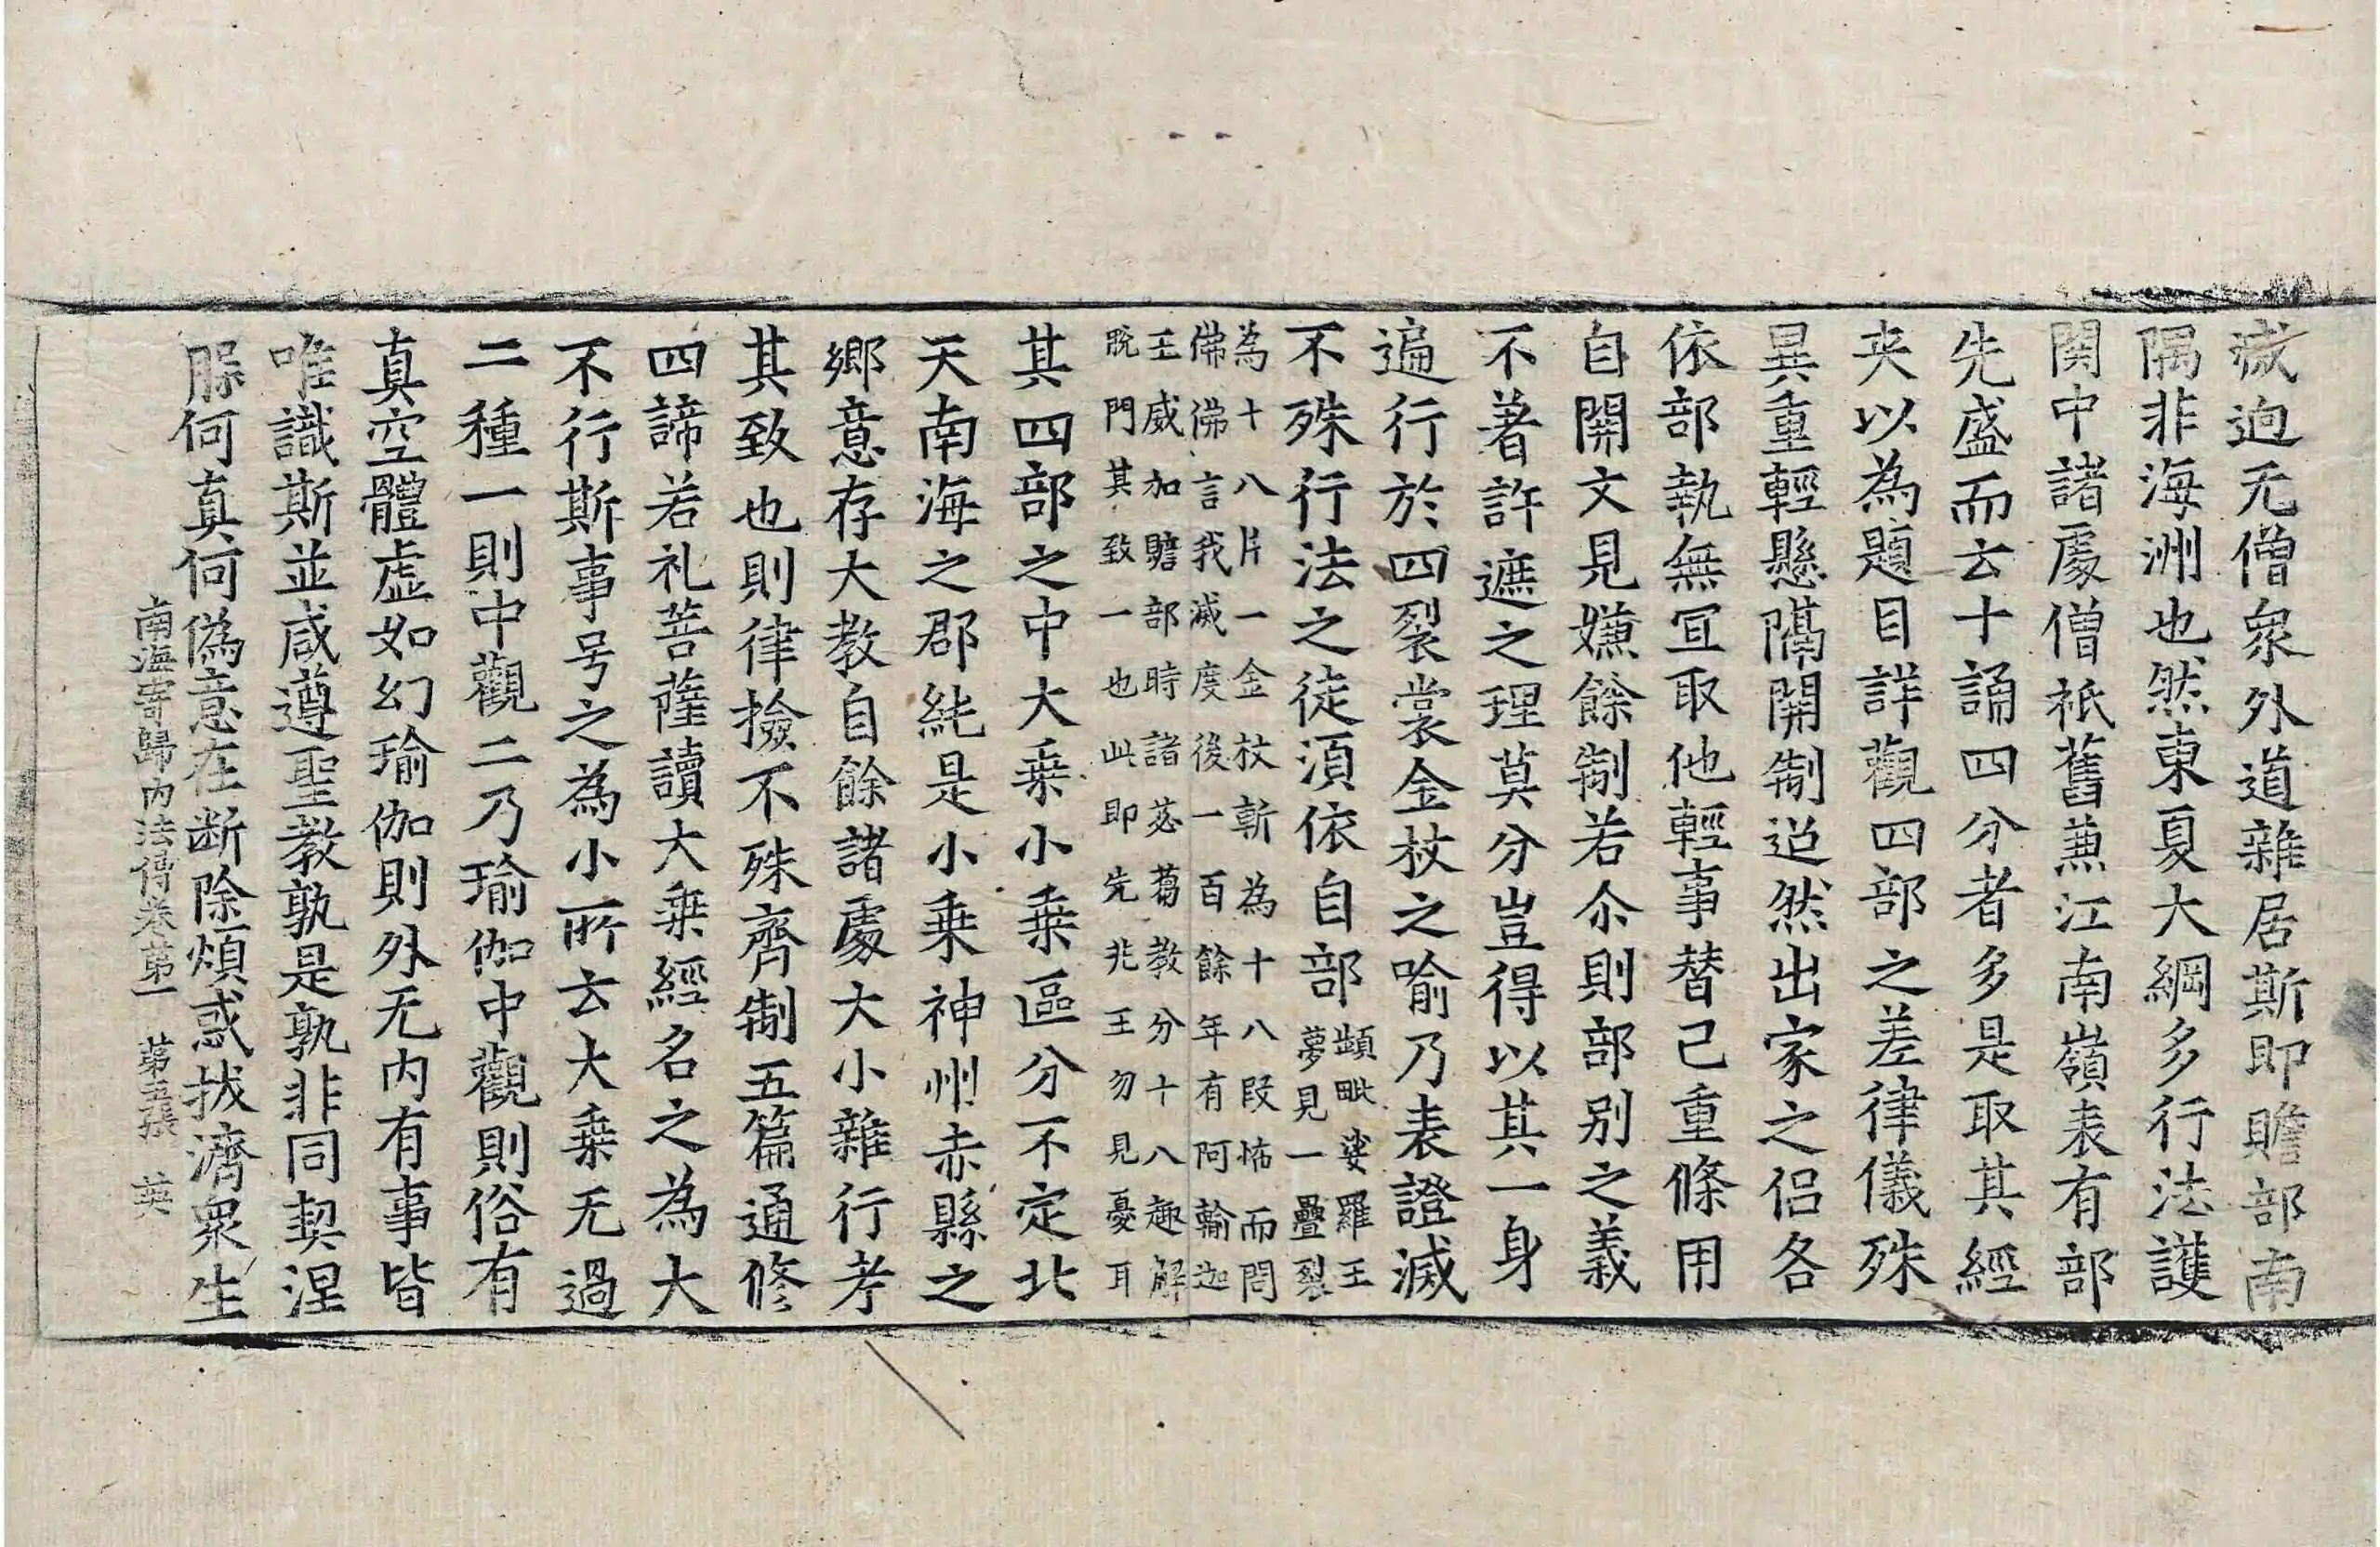 滅迥无僧衆外道雜居斯即贍部南
隅非海洲也然東夏大綱多行法護
関中諸處僧祇舊兼江南嶺表有部
先盛而云十誦四分者多是取其經
夾以為題目詳觀四部之差律儀殊
異重輕懸隔開制迢然出家之侣各
依部執無冝取他輕事替己重條用
自開文見嫌餘制若尒則部别之義
不著許遮之理莫分豈得以其一身
遍行於四裂裳金杖之喻乃表證滅
不殊行法之徒須依自部
頻毗娑羅王
夢見一疊裂
為十八片一金杖斬為十八段怖而問
佛佛言我滅度後一百餘年有阿輸迦
王威加贍部時諸苾蒭教分十八趣解
脱門其致一也此即先兆王勿見憂耳
其四部之中大乗小乗區分不定北
天南海之郡純是小乗神州赤縣之
鄉意存大教自餘諸處大小雜行考
其致也則律撿不殊齊制五篇通修
四諦若礼菩薩讀大乗經名之為大
不行斯事号之為小所云大乗无過
二種一則中觀二乃瑜伽中觀則俗有
真空體虛如幻瑜伽則外无内有事皆
唯識斯並咸遵聖教孰是孰非同契涅
脲何真何偽意在断除煩惑拔濟衆生
南海寄歸内法傳卷苐一 苐五張 英